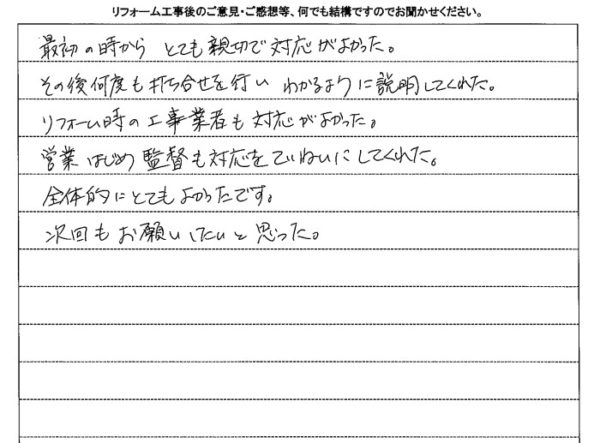 リフォーム工事後のご意見・ご感想等、何でも結構ですのでお聞かせください。
最初の時から とても親切で対応がよかった。
その後何度も打ち合せを行い わかるように説明してくれた。
リフォーム時の工事業者も対応がよかった。
営業はじめ監督も対応をていねいにしてくれた。
全体的にとてもよかったです。
次回もお願いしたいと思った。